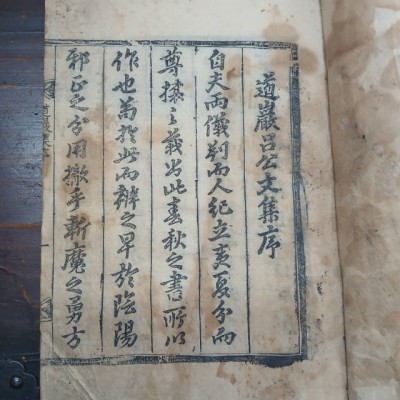 遁巖呂公文集序
自夫兩儀判而人紀立夷夏分而
尊攘之義尙此春秋之書所以
作也苟於此而辨之早於陰陽
邪正之分用撤手斬魔之勇方